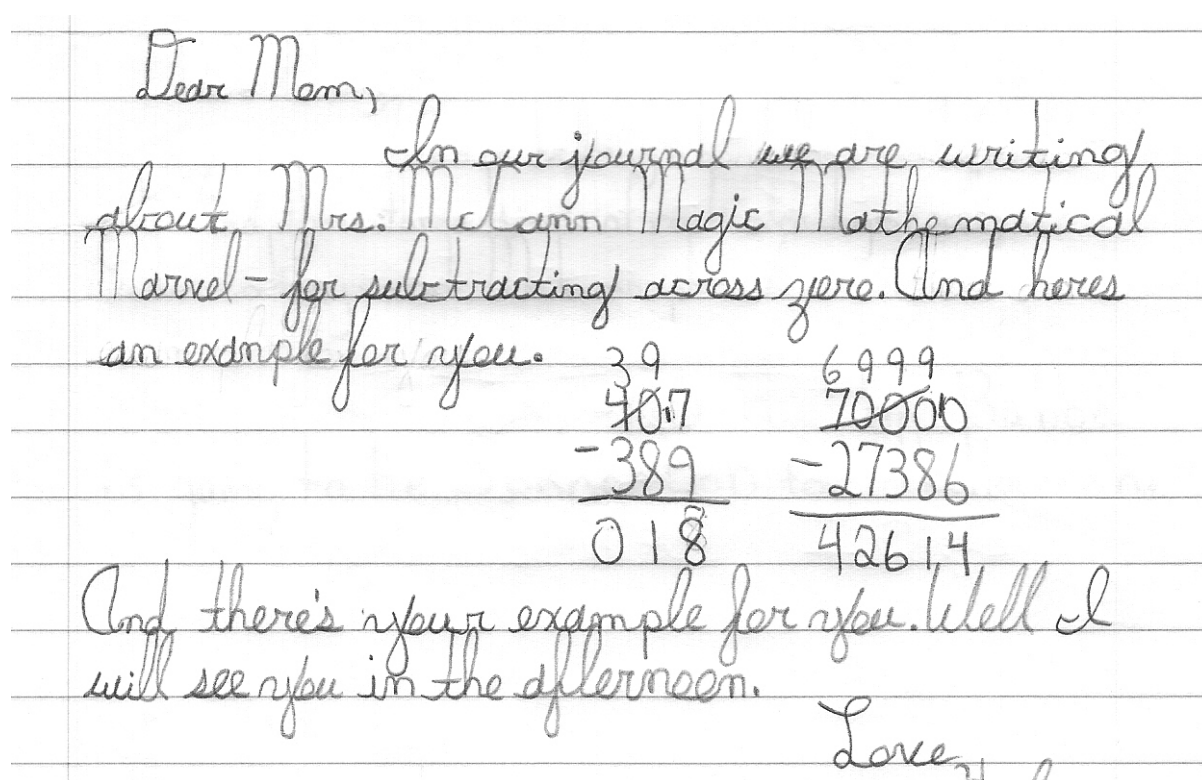 Dear Mom,
In our journal we are writing
about Mrs. McCann Magic Mathematical
Marvel - for subtracting across zero. And heres
an example for you.
39 6999
407 70000
-389 -27386
018 42614
And there's your example for you. Well I
will see you in the afternoon.
Love,